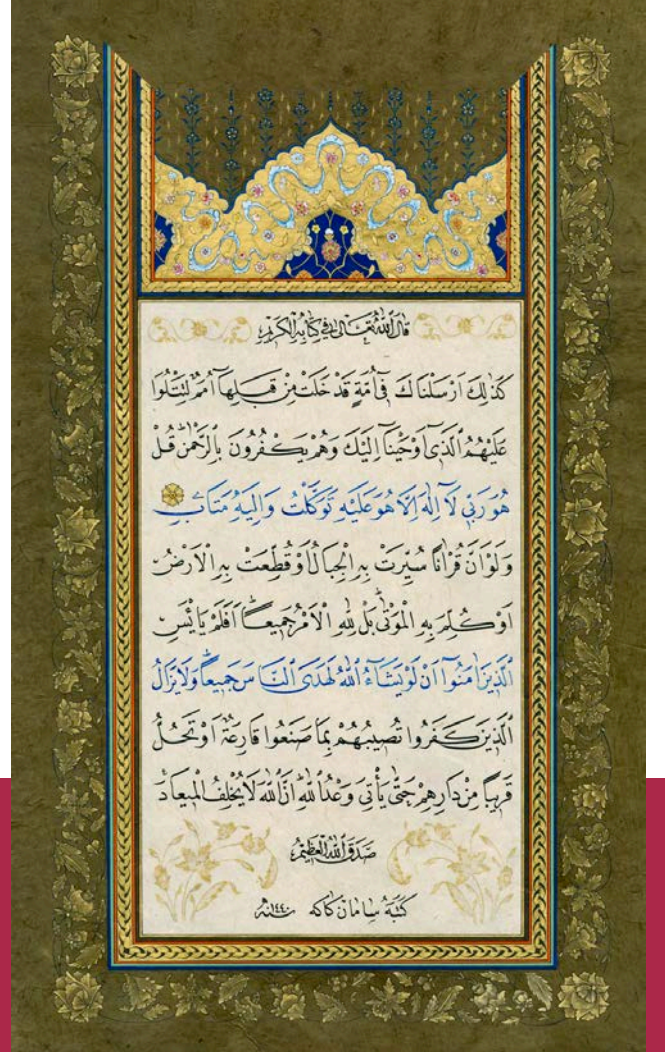 قال الله تعالى في كتابه الكريم
كَذٰلِكَ اَرْسَلْنَاكَ فٓي اُمَّةٍ قَدْ خَلَتْ مِنْ قَبْلِهَآ اُمَمٌ لِتَتْلُوَا
عَلَيْهِمُ الَّذٓي اَوْحَيْنَٓا اِلَيْكَ وَهُمْ يَكْفُرُونَ بِالرَّحْمٰنِ قُلْ
هُوَ رَبّٓي لَٓا اِلٰهَ اِلَّا هُوَ عَلَيْهِ تَوَكَّلْتُ وَاِلَيْهِ مَتَابِ
وَلَوْ اَنَّ قُرْاٰنًا سُيِّرَتْ بِهِ الْجِبَالُ اَوْ قُطِّعَتْ بِهِ الْاَرْضُ
اَوْ كُلِّمَ بِهِ الْمَوْتٰى بَلْ لِلّٰهِ الْاَمْرُ جَمٖيعًا اَفَلَمْ يَايْـَٔسِ
الَّذٖينَ اٰمَنُٓوا اَنْ لَوْ يَشَٓاءُ اللّٰهُ لَهَدَى النَّاسَ جَمٖيعًا وَلَا يَزَالُ
الَّذٖينَ كَفَرُوا تُصٖيبُهُمْ بِمَا صَنَعُوا قَارِعَةٌ اَوْ تَحُلُّ
قَرٖيبًا مِنْ دَارِهِمْ حَتّٰى يَأْتِيَ وَعْدُ اللّٰهِ اِنَّ اللّٰهَ لَا يُخْلِفُ الْمٖيعَادَ
صدق الله العظيم
كتبه سامان كاكه سنة ١٤٤٠